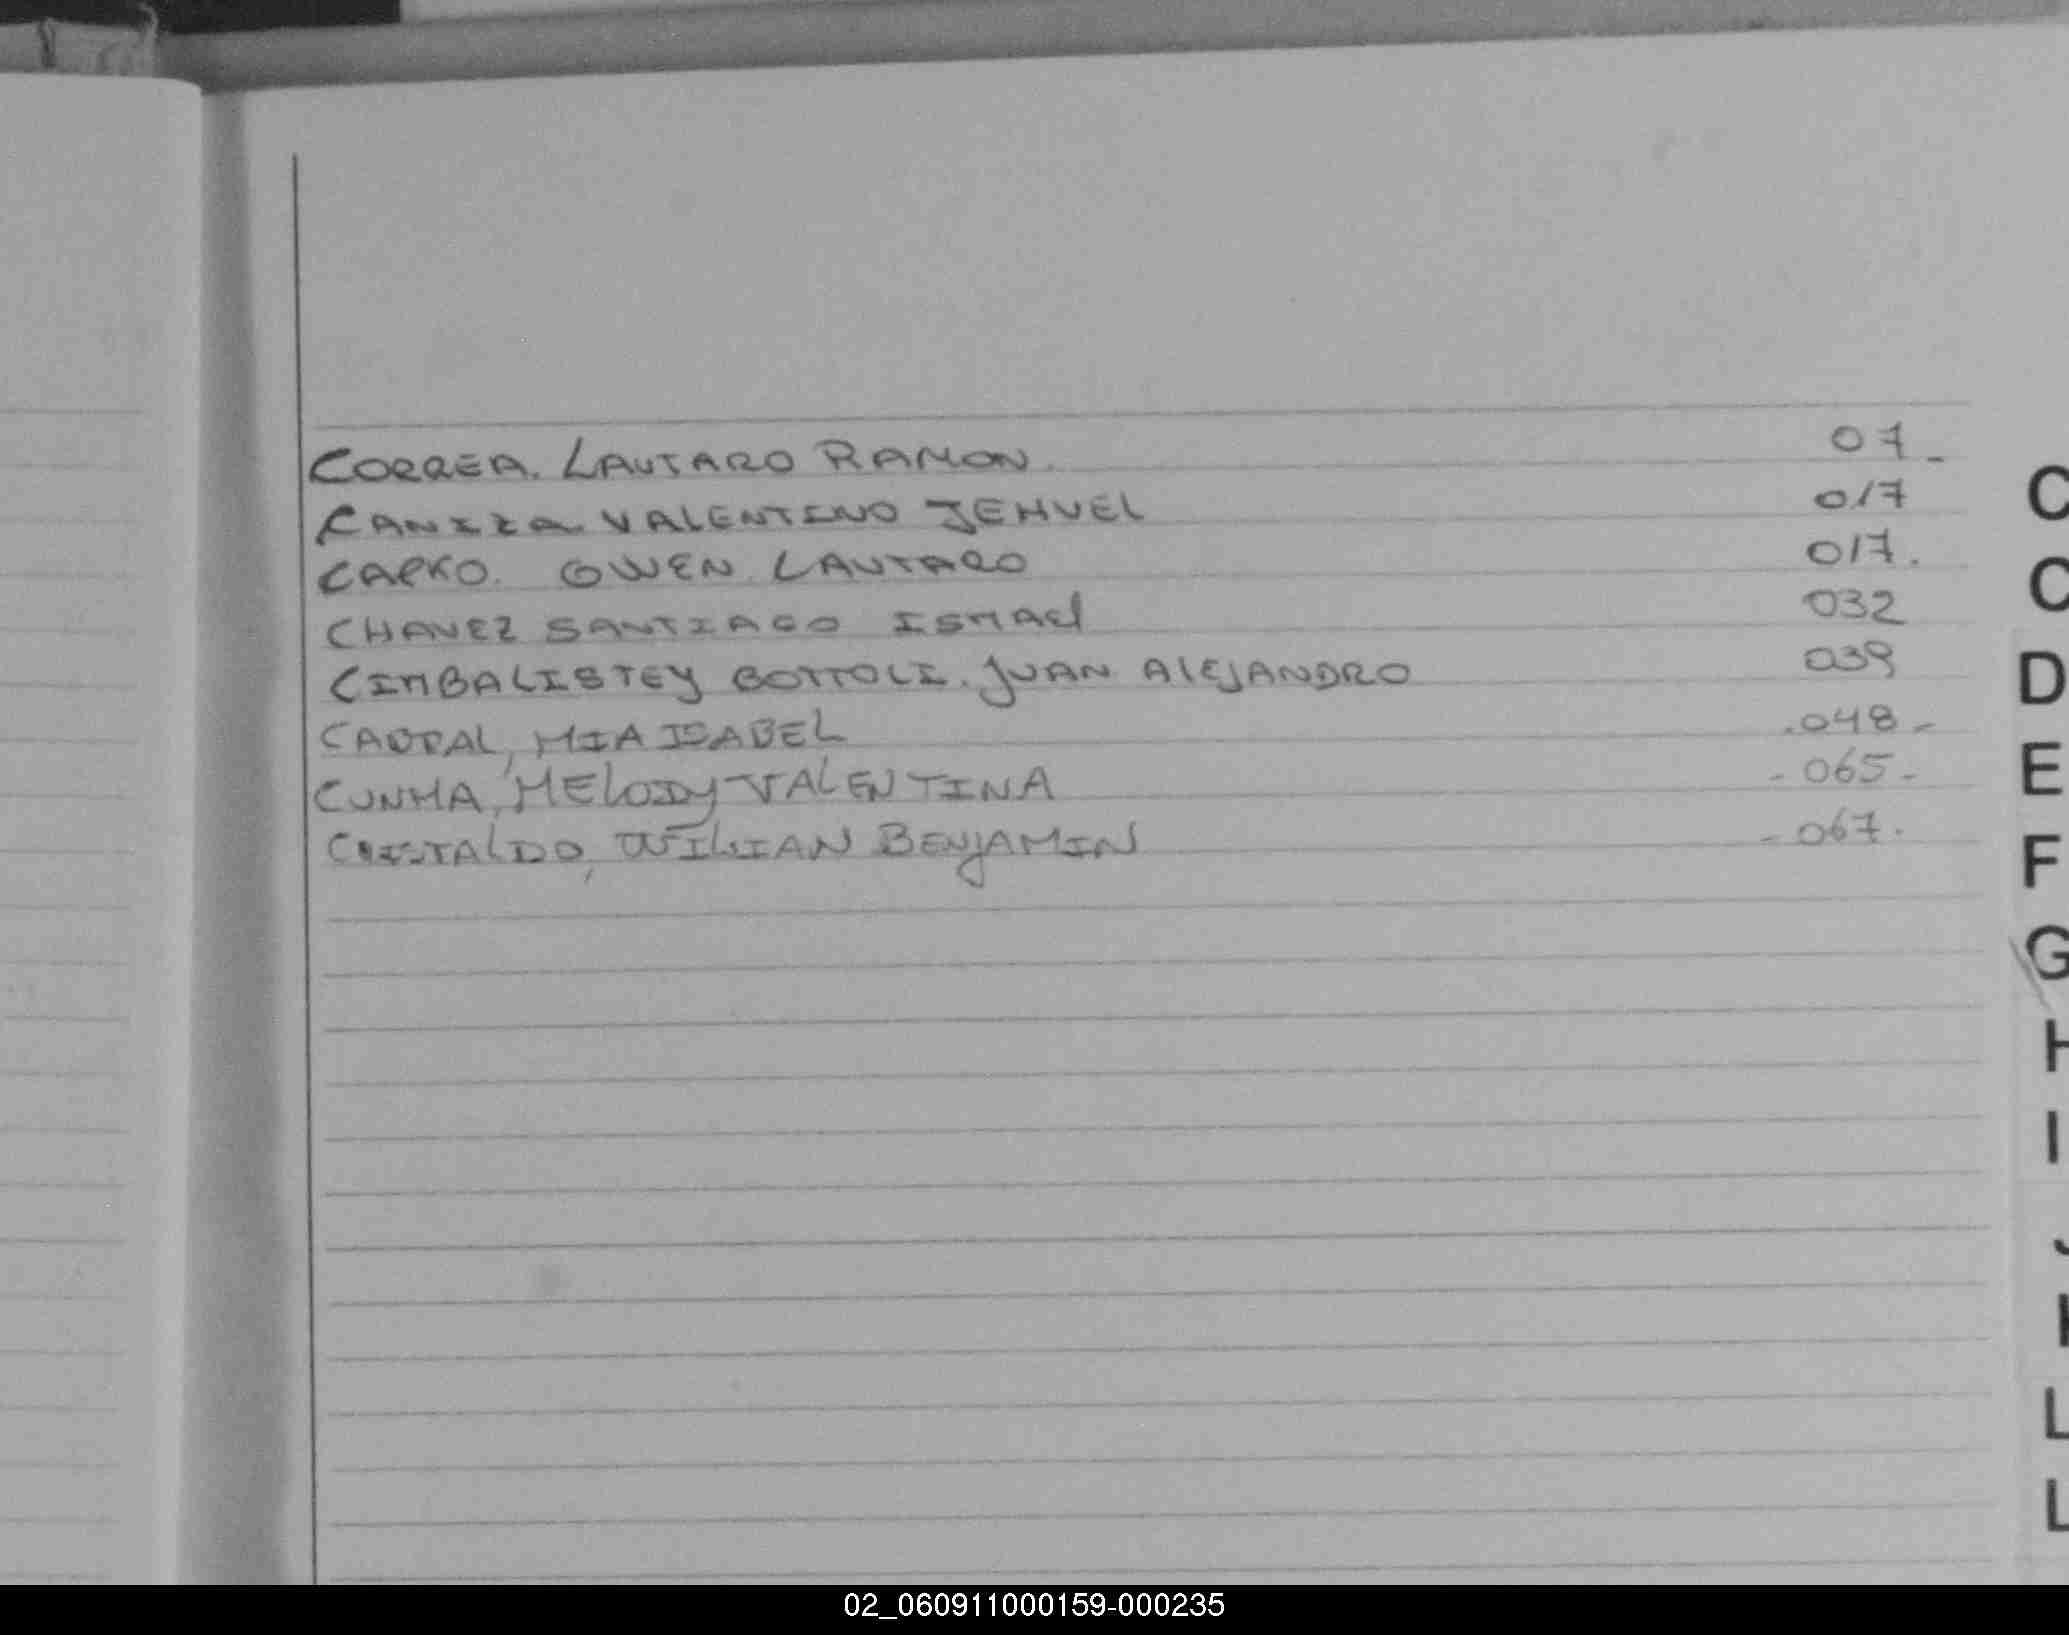 CORREA. LAUTARO RAMON. 07-
CANIZA VALENTINO JEHUEL 017
CAPKO. OWEN LAUTARO 017.
CHAVEZ SANTIAGO ISMAEl 032
CIMBALISTEY BOTTOLI. JUAN AlEJANDRO 039
CABRAL, MIA ISABEL .048-
CUNHA, MELODY VALENTINA -065-
WILIAN BENJAMIN -067.
C
C
D
E
F
G
H
I
J
K
L
L
02_060911000159-000235